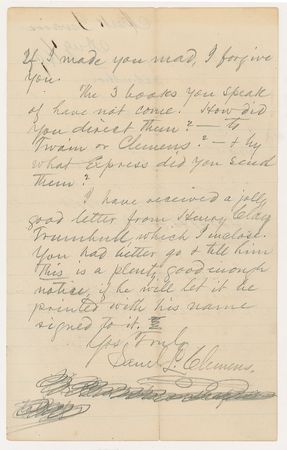 If I made you mad, I forgive
you.
The 3 books you speak
of have not come. How did
you direct them? — to
Twain or Clemens? — & by
what Express did you send
them?
I have received a jolly
good letter from Henry Clay
Trumbull which I inclose.
You had better go & tell him
this is a plenty good enough
notice, if he will let it be
printed with his name
signed to it.
Yrs Truly
Saml L. Clemens.